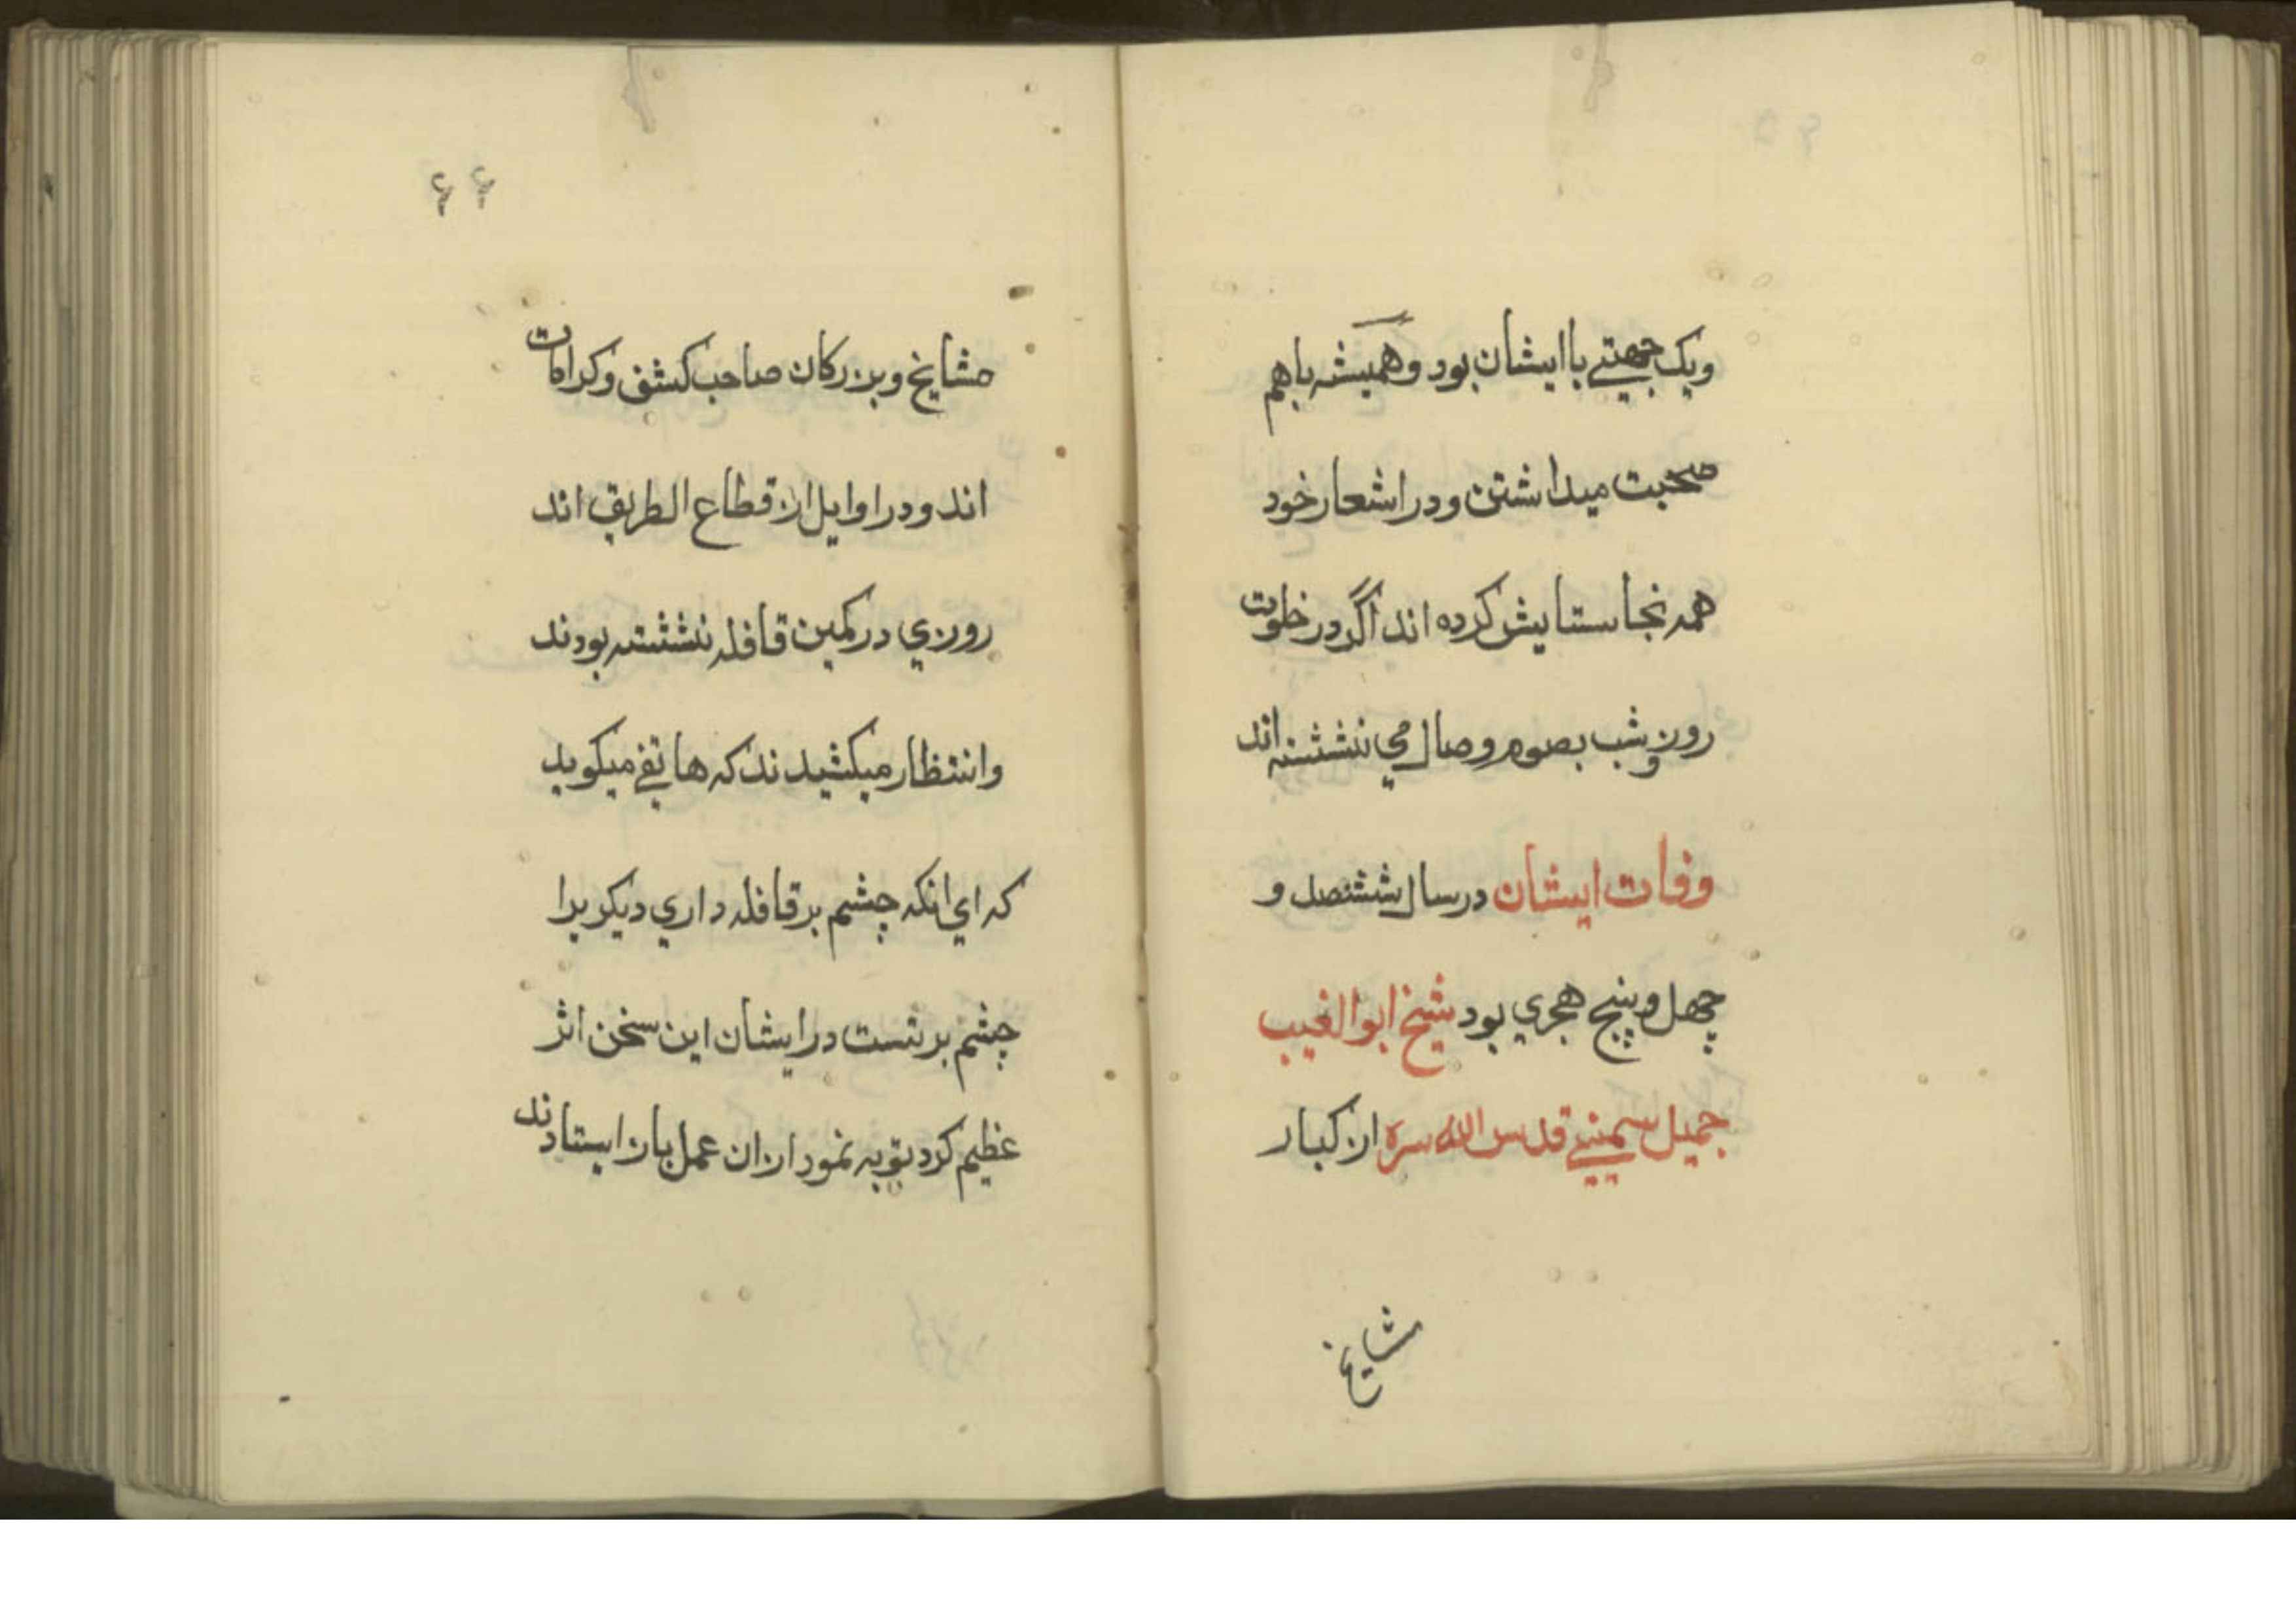 ویک جهتے با ایشان بود وهمیشه باهم
صحبت میداشتن و در اشعار خود
همه نجا ستایش کرده اند اگر در خلوت
روز وشب بصوم وصال می ننشسته اند
وفات ایشان در سال ششصد و
چهل و پنج هجري بود شیخ ابوالغیب
جمیل سمینے قدس الله سره از کبار
مشایخ
۶۶
مشایخ و بزرکان صاحب کشف و کرامات
اند و در اوایل از قطاع الطریق اند
روزي در کمین قافله نشسته بودند
وانتظار میکشیدند که هاتفے میکوید
که اي انکه چشم بر قافله داري دیکر برا
چشم برتست در ایشان این سخن اثر
عظیم کرد توبه نمود از ان عمل باز ایستادند